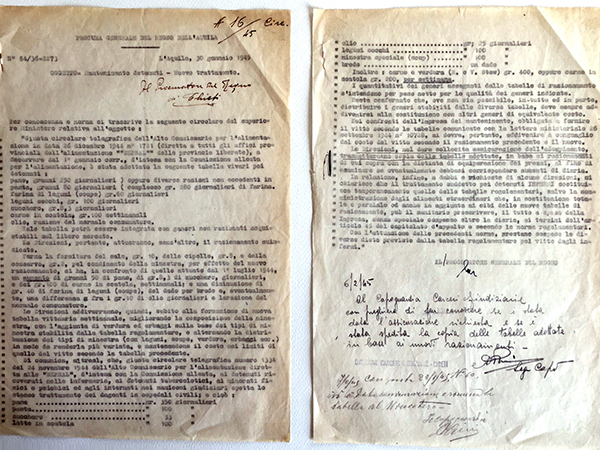 # 16/45 Circ.
PROCURA GENERALE DEL REGNO DELL'AQUILA
N° 64/36-2273 L'Aquila, 30 gennaio 1945
OGGETTO: Mantenimento detenuti - Nuovo trattamento.
Il Procuratore del Regno
Chieti
Per conoscenza e norma di trascrive la seguente circolare del superiore
Ministero relativa all'oggetto:
"Giusta circolare telegrafica dell'Alto Commissario per l'alimentazione
in data 26 dicembre 194 n° 1711 (diretta a tutti gli uffici
decorrere dal 1° gennaio corr., d'intesa con la Commissione alleata
per l'alimentazione, è stata adottata la seguente tabella viveri per
detenuti:
legumi secchi, gr. 100 giornalieri
zucchero, gr. giornalieri
carne in scatola, gr. 100 settimanali
olio, razione del normale consumatore.
Tale tabella potrà essere integrata con generi non razionati
sul libero mercato.
Le Direzioni, pertanto, attueranno, senz'altro, il razionamento
dicato.
Ferma la fornitura del sale, gr. 10, delle cipolle, gr. 5, e della
conserva, gr. 5, pel condimento della minestra, per effetto del nuovo
razionamento, si ha, in confronto di quello attuato dal 1° luglio 1944,
un aumento di grammi 50 di pane, di gr. 5 di zucchero, giornalieri,
e di gr. 100 di carne in scatola, settimanali e una diminuzione di
gr. di farina di legumi (soupe), del dado per brodo e, eventualmente,
una differenza tra i gr. 10 di olio giornalieri e la razione del
normale consumatore.
Le Direzioni addiverranno, quindi, subito alla formazione di nuove
tabelle vittuarie, migliorando la composizione della minestra,
con l'aggiunta di verdura ed ortaggi sulla base dei tipi di minestra
stabiliti dalla tabella regolamentare, e alternando la distribuzione
dei tipi di minestra (con legumi, soupe, verdura ed ortaggi),
in modo da renderla più variata, e mantenendo il costo nei limiti di
quello del vitto secondo la tabella precedente.
Si comunica, altresì, che, giusta circolare telegrafica numero 1334
del 24 novembre 1944 dell'Alto Commissario per l'alimentazione diretta
alle "SEPRAL", d'intesa con la Commissione alleata, ai detenuti
ricoverati nelle infermerie, ai detenuti tubercolotici, ai minorati fisici
e psichici ed agli internati nei manicomi giudiziari spetta lo
stesso trattamento dei degenti in ospedali civili, e cioè:
giornalieri
pasta 100
zucchero 15
latte in scatola 100
olio gr: 25 giornalieri
legumi secchi " 100 "
minestra speciale (soup) " 100 "
brodo un dado
Inoltre: carne e verdura (M. e V. Stew) gr. 400, oppure carne in
scatola gr. 200, per settimana.
I quantitativi dei generi assegnati dalle tabelle di razionamento
s'intendono per peso netto per le qualità dei generi indicati.
Resta confermato che, ove non sia possibile, in tutto od in parte,
distribuire i generi stabiliti dalle diverse tabelle, deve sempre
addivenirsi alla sostituzione con altri generi di equivalente costo.
Nei confronti dell'Impresa del mantenimento, obbligata a fornire
il vitto secondo le tabelle comunicate con la lettera ministeriale 26
settembre 1944 n° 2228, si dovrà, pertanto, addivenire al conguaglio
del costo del vitto secondo il razionamento precedente ed il nuovo.
Le Direzioni, nel dare sollecita assicurazione dell'adempimento,
trasmetteranno copia delle tabelle adottate, in base ai razionamenti
suindicati, con la distinta comparazione dei prezzi, ai fini di
esaminare se eventualmente debbasi corrispondere aumento di diaria.
In relazione, infine, a dubbi e richieste di alcune direzioni, si
chiarisce che il trattamento suddetto pei detenuti INFERMI sostituisce
temporaneamente quello delle tabelle regolamentari, salvo la
somministrazione degli alimenti straordinari che, in sostituzione totale
o parziale od anche in aggiunta ai cibi delle nuove tabelle di
razionamento, può il sanitario prescrivere, il tutto a spese della
Impresa, senza speciale compenso oltre la diaria, ai termini dell'articolo
41 del capitolato d'appalto e secondo le norme regolamentari.
Con l'attuazione delle precedenti norme, pertanto cessano le diverse
diete previste dalla tabelle regolamentare pel vitto degli infermi."
IL PROCURATORE GENERALE DEL REGNO
6/2/45
Al Capoguardia Carceri Giudiziarie
con preghiera di far conoscere se è stata
data l'assicurazione richiesta e se è
stata spedita la copia delle tabelle adottate
in base ai nuovi razionamenti.